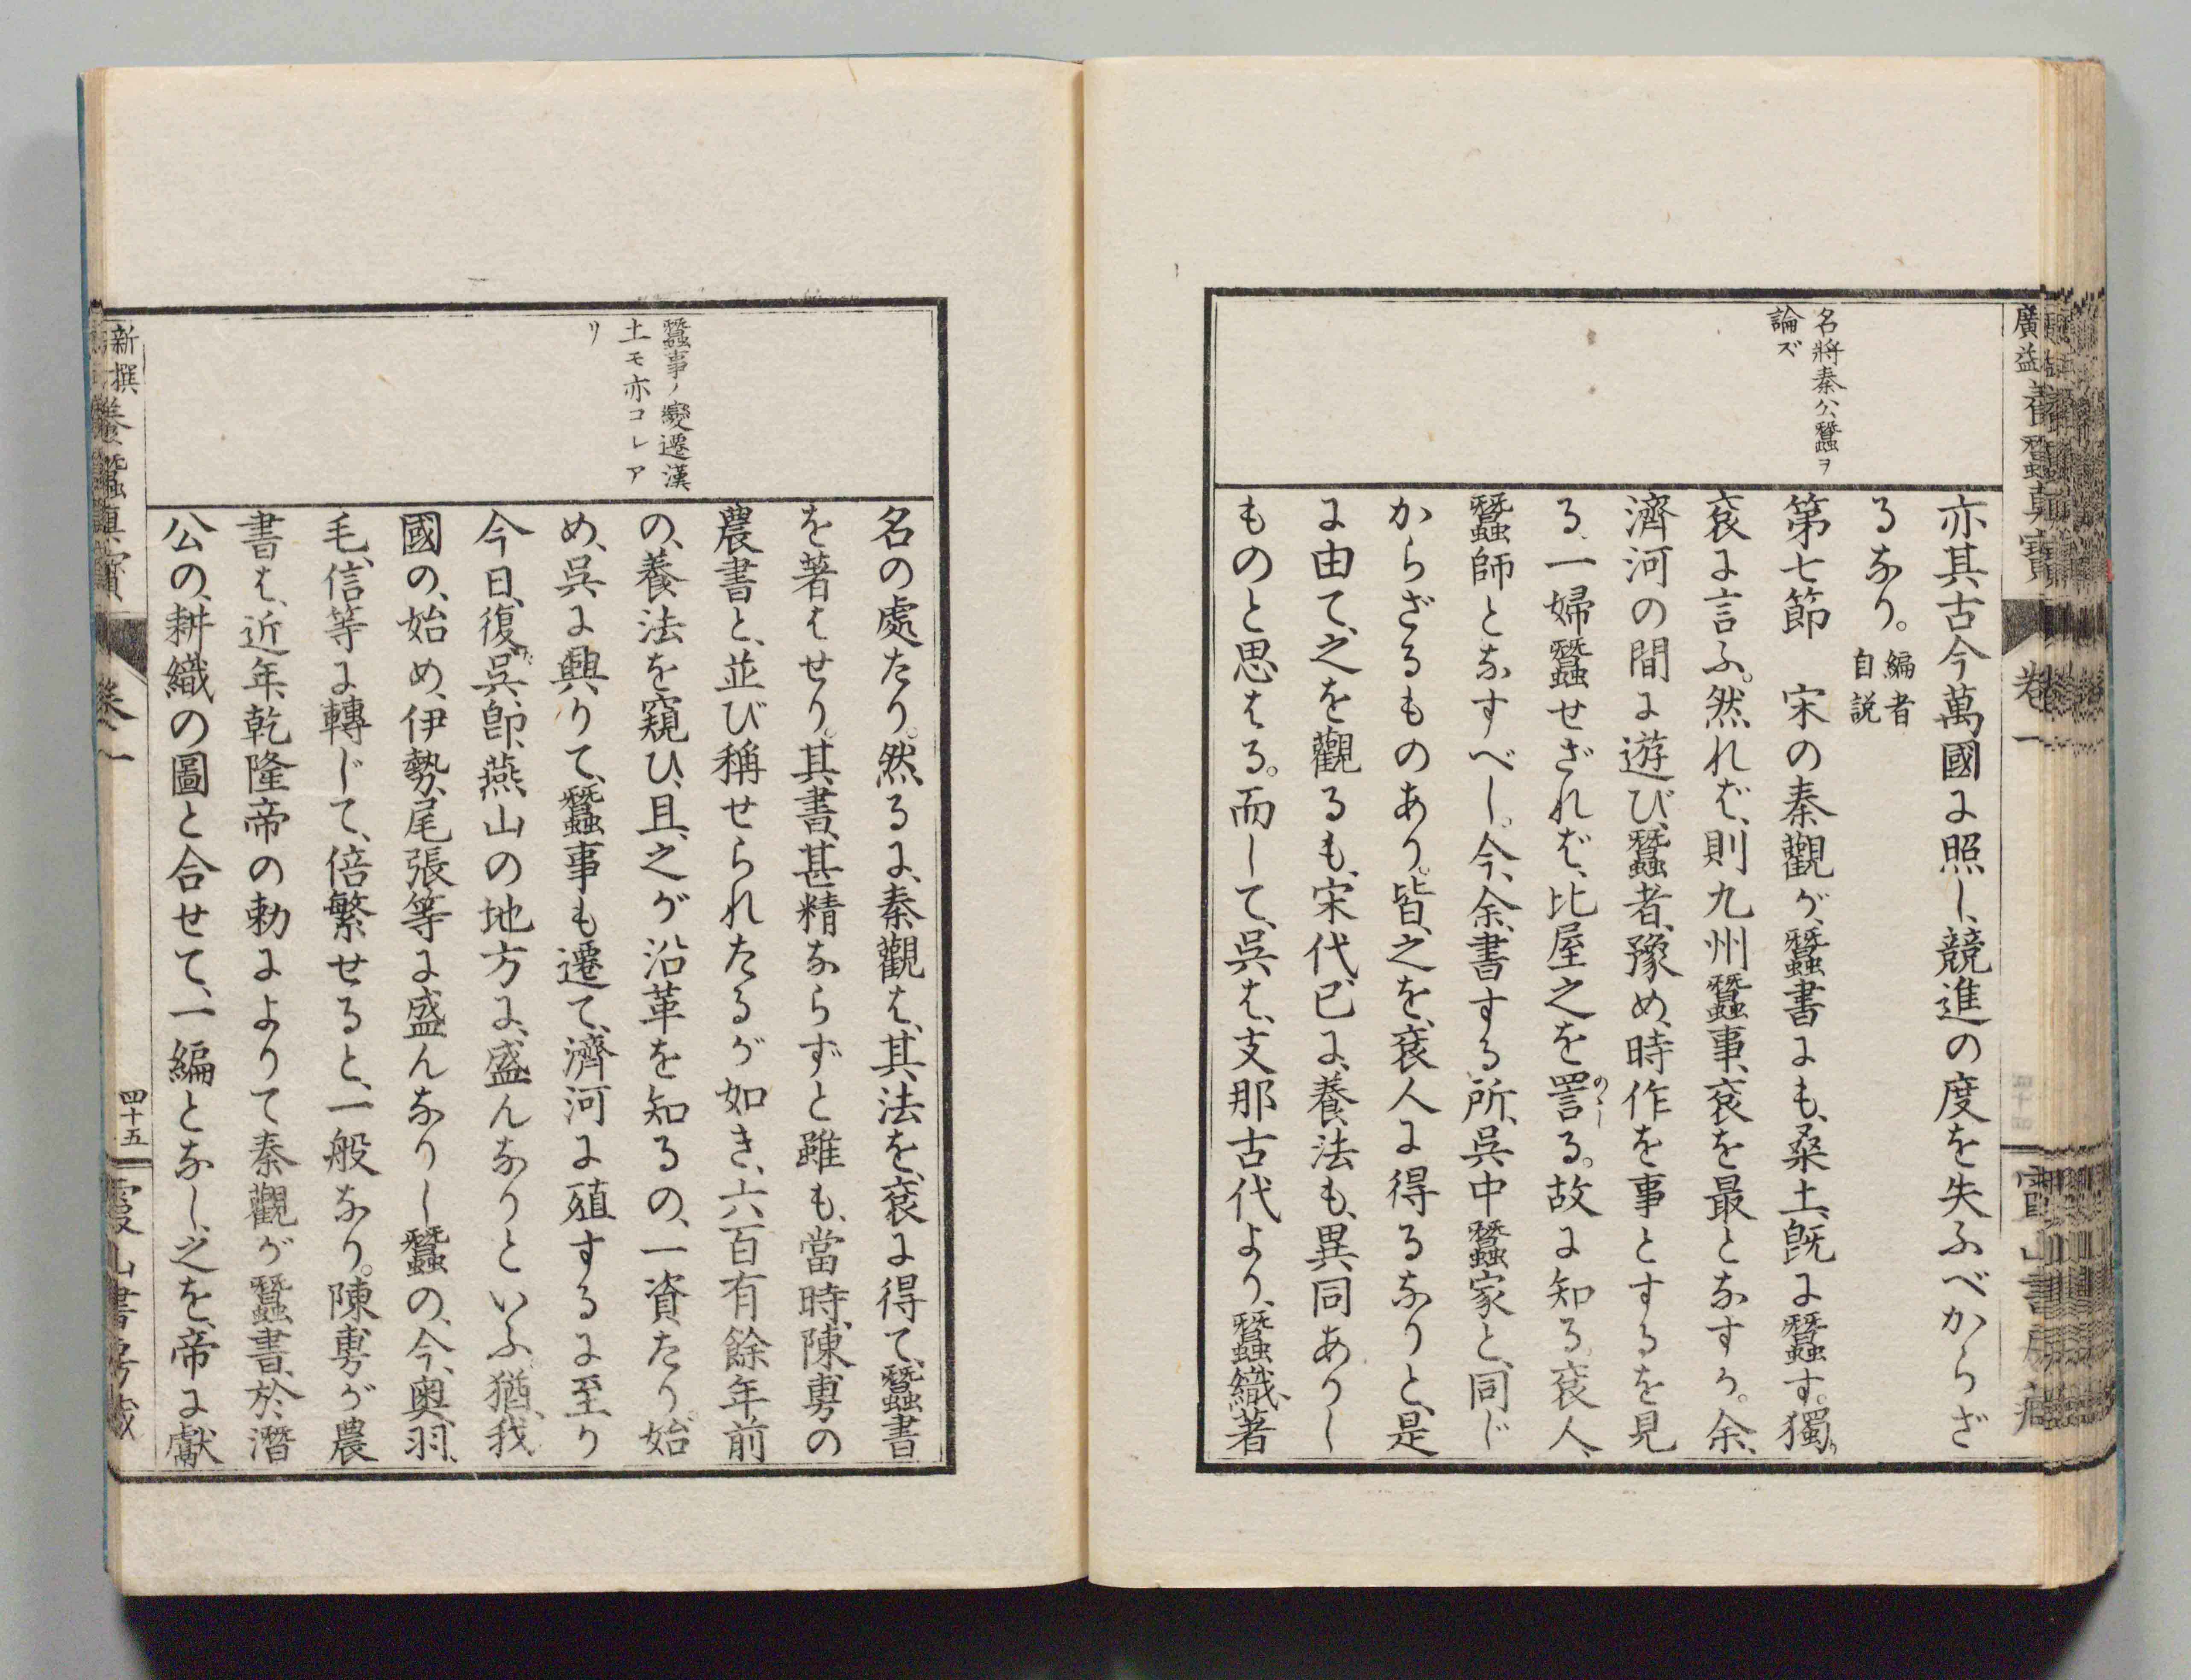 名將秦公蠶ヲ
論ズ
亦其古今萬國に照し、競進の度を失ふべからざ
るなり。編者自説
第七節　宋の秦觀が、蠶書にも、桑土、既に蠶す。獨り
兗に言ふ。然れば、則九州蠶事、兗を最となすか。余、
濟河の間に遊び、蠶者、豫め、時作を事とするを見
る、一婦蠶せざれば、比屋之を詈る。故に知る、兗人、
蠶師となすべし。今、余、書する所、呉中蠶家と、同じ
からざるものあり。皆、之を、兗人に得るなりと、是
に由て、之を觀るも、宋代、已に、養法も、異同ありし
ものと思はる。而して、呉は、支那古代より、蠶織、著
蠶事ノ變遷漢
土モ亦コレア
リ
名の處たり。然るに、秦觀は、其法を、兗に得て、蠶書
を著はせり。其書、甚精ならずと雖も、當時、陳旉の
農書と、並び稱せられたるが如き、六百有餘年前
の、養法を窺ひ、且、之が沿革を知るの、一資たり。始
め、呉に興りて、蠶事も遷て、濟河に殖するに至り
今日、復、呉、即、燕山の地方に、盛んなりといふ。猶、我
國の、始め、伊勢、尾張等に盛んなりし蠶の、今、奥、羽、
毛、信等に轉じて、倍繁せると、一般なり。陳旉が農
書は、近年、乾隆帝の勅によりて秦觀が蠶書、於潛
公の、耕織の圖と合せて、一編となし、之を、帝に獻
新撰養蠶眞寶
卷一
四十五